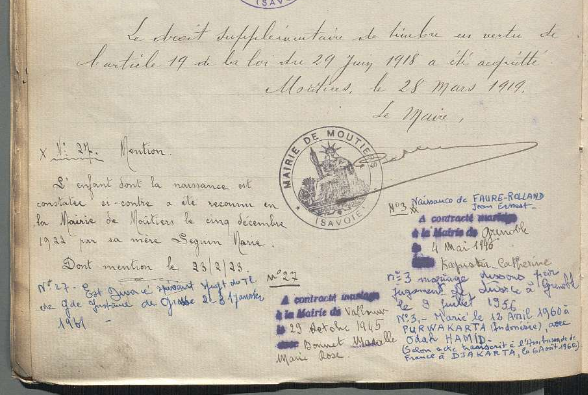 Le droit supplémentaire de timbre en vertu de
l'article 19 de la loi du 29 Juin 1918 a été acquitté
Moûtiers, le 28 Mars 1919.
Le Maire,
MAIRIE DE MOUTIERS
(SAVOIE)
x N° 27. Mention.
L'enfant dont la naissance est
constatée ci-contre a été reconnu en
la Mairie de Moûtiers le cinq décembre
1922 par sa mère Seguin Marie.
Dont mention le 23/2/23.
N° 27 - Est Divorcé suivant
de Gde Instance de Grasse 31 janvier
1961
N° 27
A contracté mariage
à la Mairie de
le 29 Octobre 1945
avec Bonnet
Marie Rose.
N° 3 Naissance de FAURE-ROLLAND
Jean Ernest
A contracté mariage
à la Mairie de Grenoble
le 4 Mai 1940
Catherine
N° 3 mariage dissous par
jugement de divorce à Grenoble
le 9 juillet 1956
N° 3. - Marié le 12 Avril 1960 à
PURWAKARTA (Indonésie), avec
Odah HAMID -
(Selon acte transcrit à l'Ambassade de
France à DJAKARTA, le 6 Août 1960)